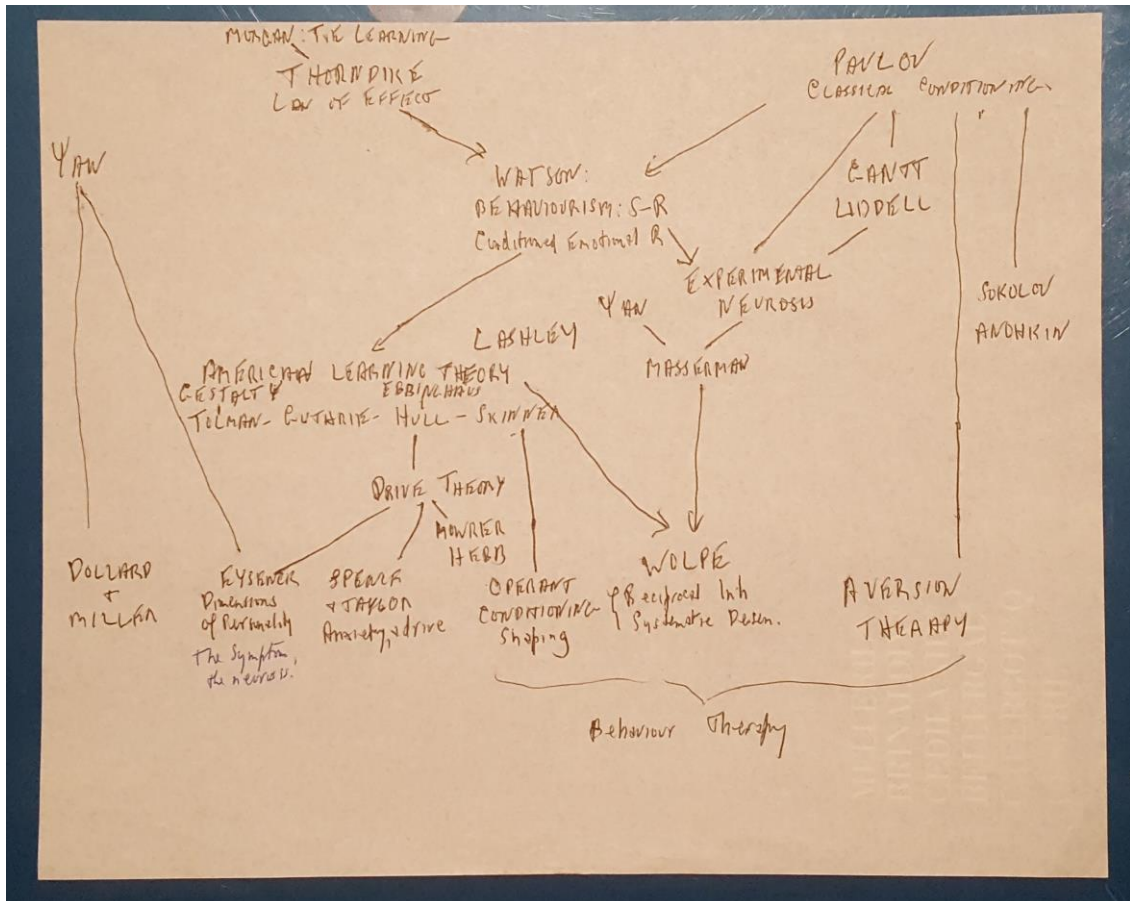 MORGAN: T+E LEARNING
THORNDIKE
LAW OF EFFECT
PAVLOV
CLASSICAL CONDITIONING
ΨAN
WATSON:
BEHAVIOURISM: S-R
Conditioned Emotional R
GANTT
LIDDELL
EXPERIMENTAL
NEUROSIS
ΨAN
MASSERMAN
SOKOLOV
ANOHKIN
LASHLEY
AMERICAN LEARNING THEORY
GESTALT Ψ
EBBINGHAUS
TOLMAN - GUTHRIE - HULL - SKINNER
DRIVE THEORY
MOWRER
HEBB
DOLLARD
+
MILLER
EYSENCK
Dimensions
of Personality
The Symptom,
the neurosis.
SPENCE
+ TAYLOR
Anxiety, a drive
OPERANT
CONDITIONING
Shaping
WOLPE
Reciprocal Inh
Systematic Desen.
AVERSION
THERAPY
Behaviour Therapy